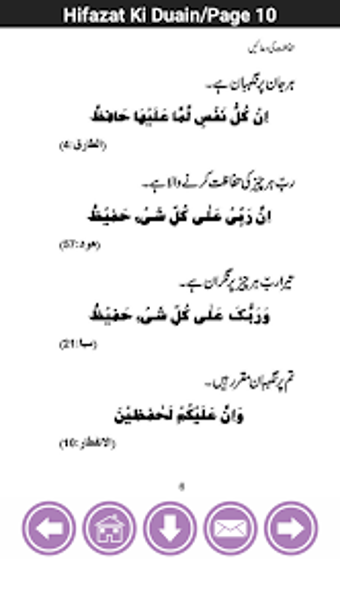 Hifazat Ki Duain/Page 10
حفاظت کی دعائیں
ہر جان پر نگہبان ہے۔
اِنْ كُلُّ نَفْسٍ لَّمَّا عَلَيْهَا حَافِظٌ
(الطارق:4)
ربّ ہر چیز کی حفاظت کرنے والا ہے۔
اِنَّ رَبِّىْ عَلٰى كُلِّ شَىْءٍ حَفِيْظٌ
(ھود:57)
تیرا ربّ ہر چیز پر نگران ہے۔
وَرَبُّكَ عَلٰى كُلِّ شَىْءٍ حَفِيْظٌ
(سبا:21)
تم پر نگہبان مقرر ہیں۔
وَاِنَّ عَلَيْكُمْ لَحٰفِظِيْنَ
(الانفطار:10)
6